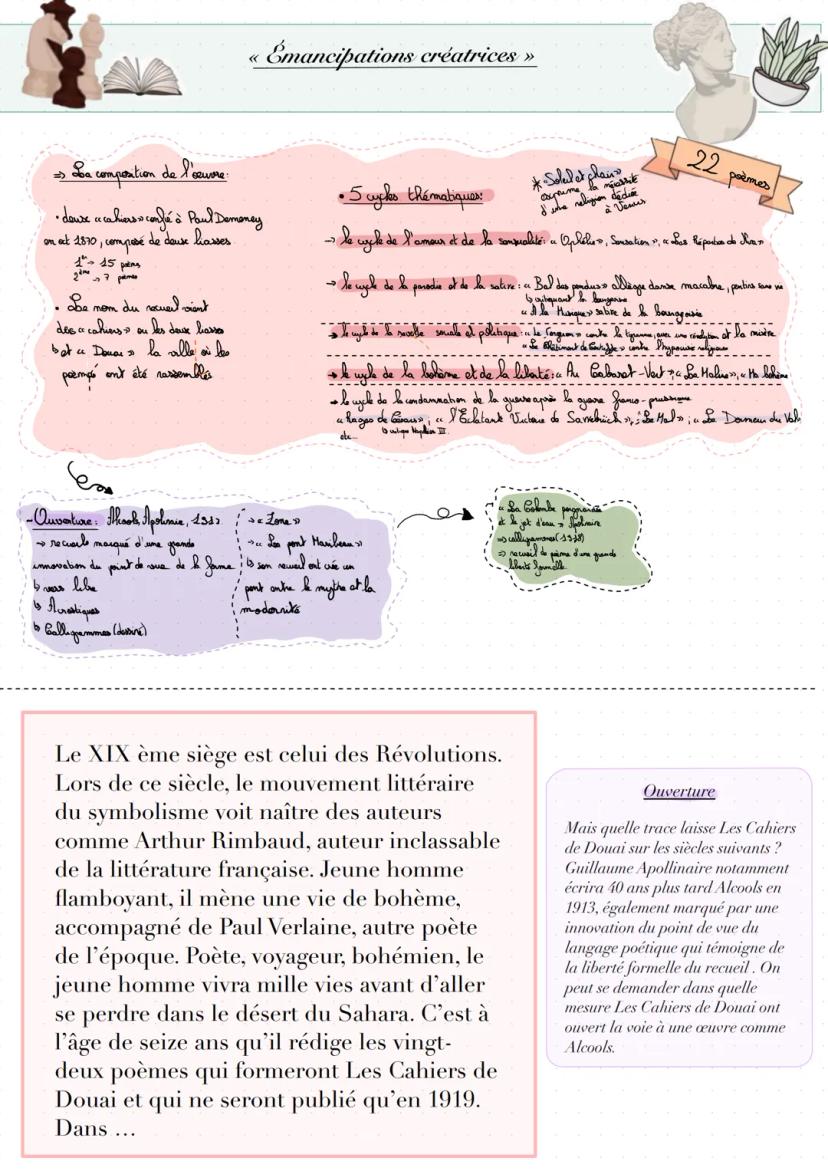 « Émancipations créatrices »
22 poèmes
=> La composition de l'œuvre:
• deux « cahiers » confié à Paul Demeney
en oct 1870, composé de deux liasses.
1er -> 15 poèmes
2ème -> 7 poèmes
• Le nom du recueil vient
des « cahiers » ou les deux liasses
et « Douai » la ville où les
poèmes ont été rassemblés
• 5 cycles thématiques:
* Soleil et chair »
exprime la nécessité
d'une religion dédiée
à Venus
-> le cycle de l'amour et de la sensualité: « Ophélie », Sensation », « Les Réparties de Nina »
-> le cycle de la parodie et de la satire: « Bal des pendus » allègre danse macabre, pantins sans vie
critiquant la bourgeoisie
« À la Musique » satire de la bourgeoisie
-> le cycle de la révolte sociale et politique: « Le Forgeron » contre la tyrannie, avec une révolution et la misère
« Le Châtiment de Tartuffe » contre l'hypocrisie religieuse
-> le cycle de la bohème et de la liberté: « Au Cabaret-Vert », « La Maline », « Ma bohème
-> le cycle de la condamnation de la guerre après la guerre franco-prussienne
« Rages de Césars », « l'Eclatante Victoire de Sarrebrück », « Le Mal », « Le Dormeur du Val
critique Napoléon III
etc...
- Ouverture: Alcools, Apolinaire, 1913.
-> recueils marqué d'une grande
innovation du point de vue de la forme
vers libre
Acrostiques
Calligrammes (dessiné)
-> « Zone »
-> « Le pont Maribeau »
son recueil ont crée un
pont entre le mythe et la
modernité
« La Colombe poignardée
et le jet d'eau » Apolinaire
=> calligrammes (1918)
=> recueil de poème d'une grande
liberté formelle
Le XIX ème siège est celui des Révolutions.
Lors de ce siècle, le mouvement littéraire
du symbolisme voit naître des auteurs
comme Arthur Rimbaud, auteur inclassable
de la littérature française. Jeune homme
flamboyant, il mène une vie de bohème,
accompagné de Paul Verlaine, autre poète
de l'époque. Poète, voyageur, bohémien, le
jeune homme vivra mille vies avant d'aller
se perdre dans le désert du Sahara. C'est à
l'âge de seize ans qu'il rédige les vingt-
deux poèmes qui formeront Les Cahiers de
Douai et qui ne seront publié qu'en 1919.
Dans ...
Ouverture
Mais quelle trace laisse Les Cahiers
de Douai sur les siècles suivants ?
Guillaume Apollinaire notamment
écrira 40 ans plus tard Alcools en
1913, également marqué par une
innovation du point de vue du
langage poétique qui témoigne de
la liberté formelle du recueil . On
peut se demander dans quelle
mesure Les Cahiers de Douai ont
ouvert la voie à une œuvre comme
Alcools.